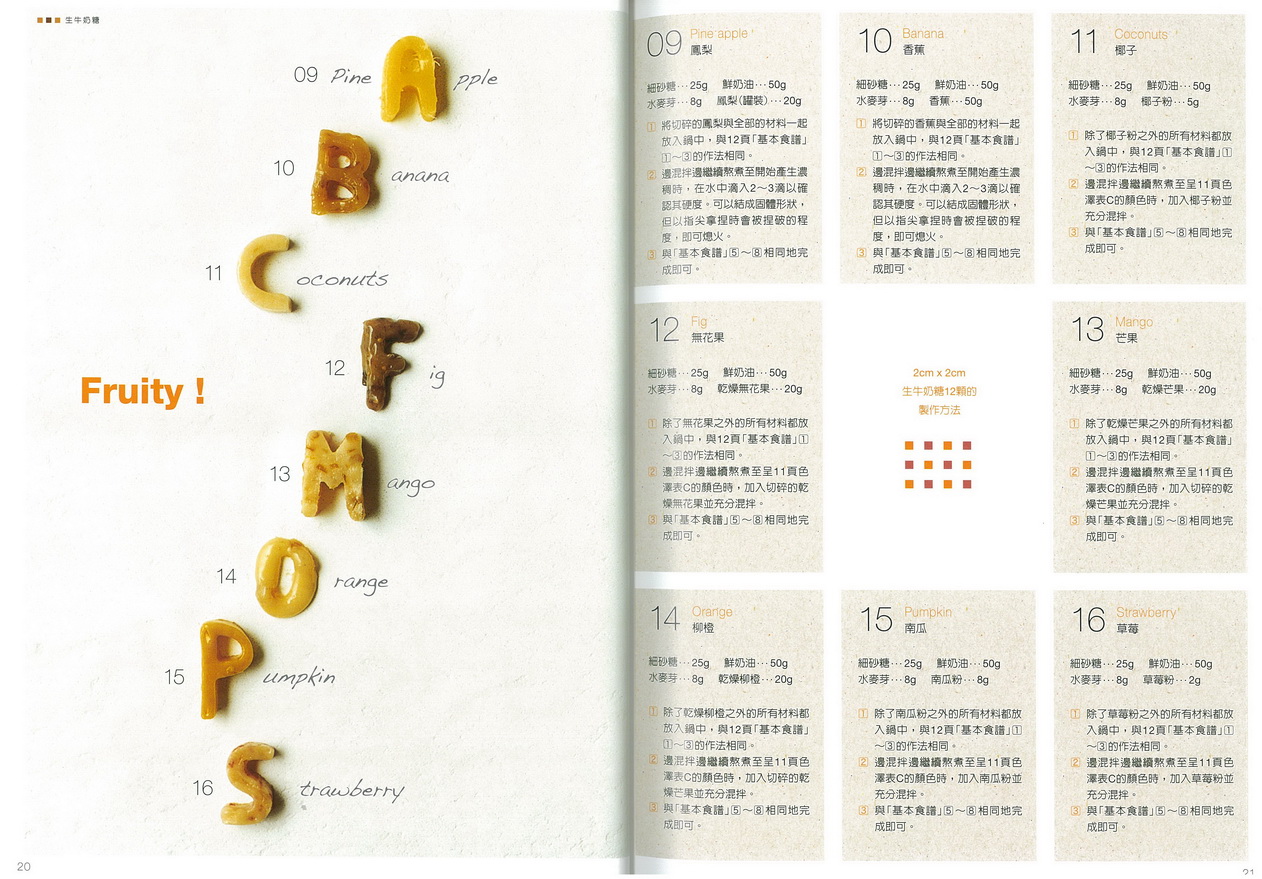 生牛奶糖
09 Pine A pple
10 B anana
11 C oconuts
12 F ig
Fruity !
13 M ango
14 O range
15 P umpkin
16 S trawberry
20
09 Pine apple
鳳梨
細砂糖…25g 鮮奶油…50g
水麥芽…8g 鳳梨(罐裝)…20g
1 將切碎的鳳梨與全部的材料一起
放入鍋中，與12頁「基本食譜」
1～3的作法相同。
2 邊混拌邊繼續熬煮至開始產生濃
稠時，在水中滴入2～3滴以確
認其硬度。可以結成固體形狀，
但以指尖拿捏時會被捏破的程
度，即可熄火。
3 與「基本食譜」5～8相同地完
成即可。
10 Banana
香蕉
細砂糖…25g 鮮奶油…50g
水麥芽…8g 香蕉…50g
1 將切碎的香蕉與全部的材料一起
放入鍋中，與12頁「基本食譜」
1～3的作法相同。
2 邊混拌邊繼續熬煮至開始產生濃
稠時，在水中滴入2～3滴以確
認其硬度。可以結成固體形狀，
但以指尖拿捏時會被捏破的程
度，即可熄火。
3 與「基本食譜」5～8相同地完
成即可。
11 Coconuts
椰子
細砂糖…25g 鮮奶油…50g
水麥芽…8g 椰子粉…5g
1 除了椰子粉之外的所有材料都放
入鍋中，與12頁「基本食譜」1
～3的作法相同。
2 邊混拌邊繼續熬煮至呈11頁色
澤表C的顏色時，加入椰子粉並
充分混拌。
3 與「基本食譜」5～8相同地完
成即可。
12 Fig
無花果
細砂糖…25g 鮮奶油…50g
水麥芽…8g 乾燥無花果…20g
1 除了無花果之外的所有材料都放
入鍋中，與12頁「基本食譜」1
～3的作法相同。
2 邊混拌邊繼續熬煮至呈11頁色
澤表C的顏色時，加入切碎的乾
燥無花果並充分混拌。
3 與「基本食譜」5～8相同地完
成即可。
2cm x 2cm
生牛奶糖12顆的
製作方法
13 Mango
芒果
細砂糖…25g 鮮奶油…50g
水麥芽…8g 乾燥芒果…20g
1 除了乾燥芒果之外的所有材料都
放入鍋中，與12頁「基本食譜」
1～3的作法相同。
2 邊混拌邊繼續熬煮至呈11頁色
澤表C的顏色時，加入切碎的乾
燥芒果並充分混拌。
3 與「基本食譜」5～8相同地完
成即可。
14 Orange
柳橙
細砂糖…25g 鮮奶油…50g
水麥芽…8g 乾燥柳橙…20g
1 除了乾燥柳橙之外的所有材料都
放入鍋中，與12頁「基本食譜」
1～3的作法相同。
2 邊混拌邊繼續熬煮至呈11頁色
澤表C的顏色時，加入切碎的乾
燥芒果並充分混拌。
3 與「基本食譜」5～8相同地完
成即可。
15 Pumpkin
南瓜
細砂糖…25g 鮮奶油…50g
水麥芽…8g 南瓜粉…8g
1 除了南瓜粉之外的所有材料都放
入鍋中，與12頁「基本食譜」1
～3的作法相同。
2 邊混拌邊繼續熬煮至呈11頁色
澤表C的顏色時，加入南瓜粉並
充分混拌。
3 與「基本食譜」5～8相同地完
成即可。
16 Strawberry
草莓
細砂糖…25g 鮮奶油…50g
水麥芽…8g 草莓粉…2g
1 除了草莓粉之外的所有材料都放
入鍋中，與12頁「基本食譜」1
～3的作法相同。
2 邊混拌邊繼續熬煮至呈11頁色
澤表C的顏色時，加入草莓粉並
充分混拌。
3 與「基本食譜」5～8相同地完
成即可。
21